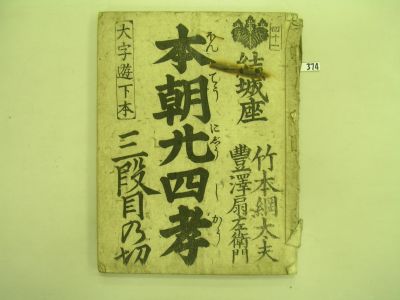 四十一
結城座
竹本綱太夫
豊澤扇左衛門
本朝廿四孝
ほんてうにじうしかう
三段目の切
大字遊下本
374